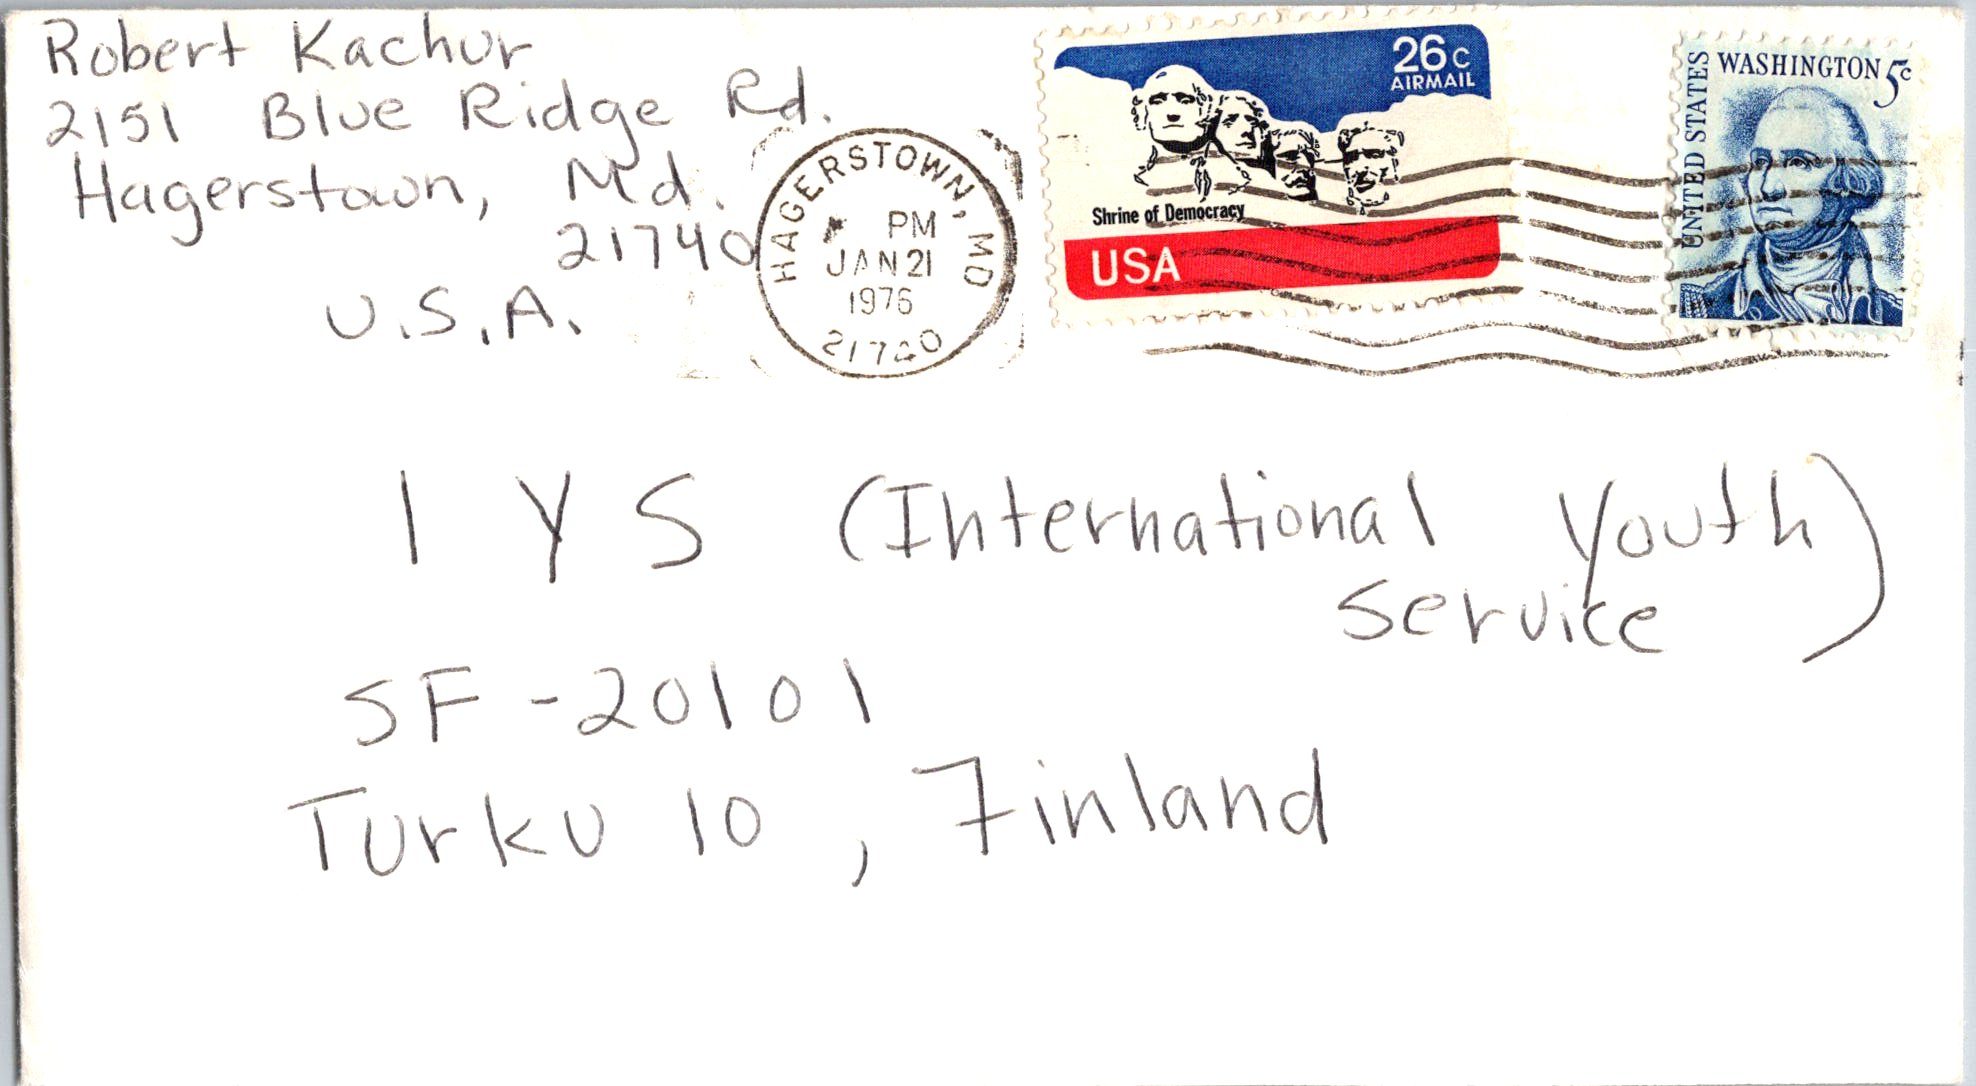 Robert Kachur
2151 Blue Ridge Rd.
Hagerstown, Md.
21740
U.S.A.
HAGERSTOWN, MD
PM
JAN 21
1976
21740
26c
AIRMAIL
Shrine of Democracy
USA
UNITED STATES
WASHINGTON 5c
I Y S (International Youth
Service)
SF-20101
Turku 10, Finland